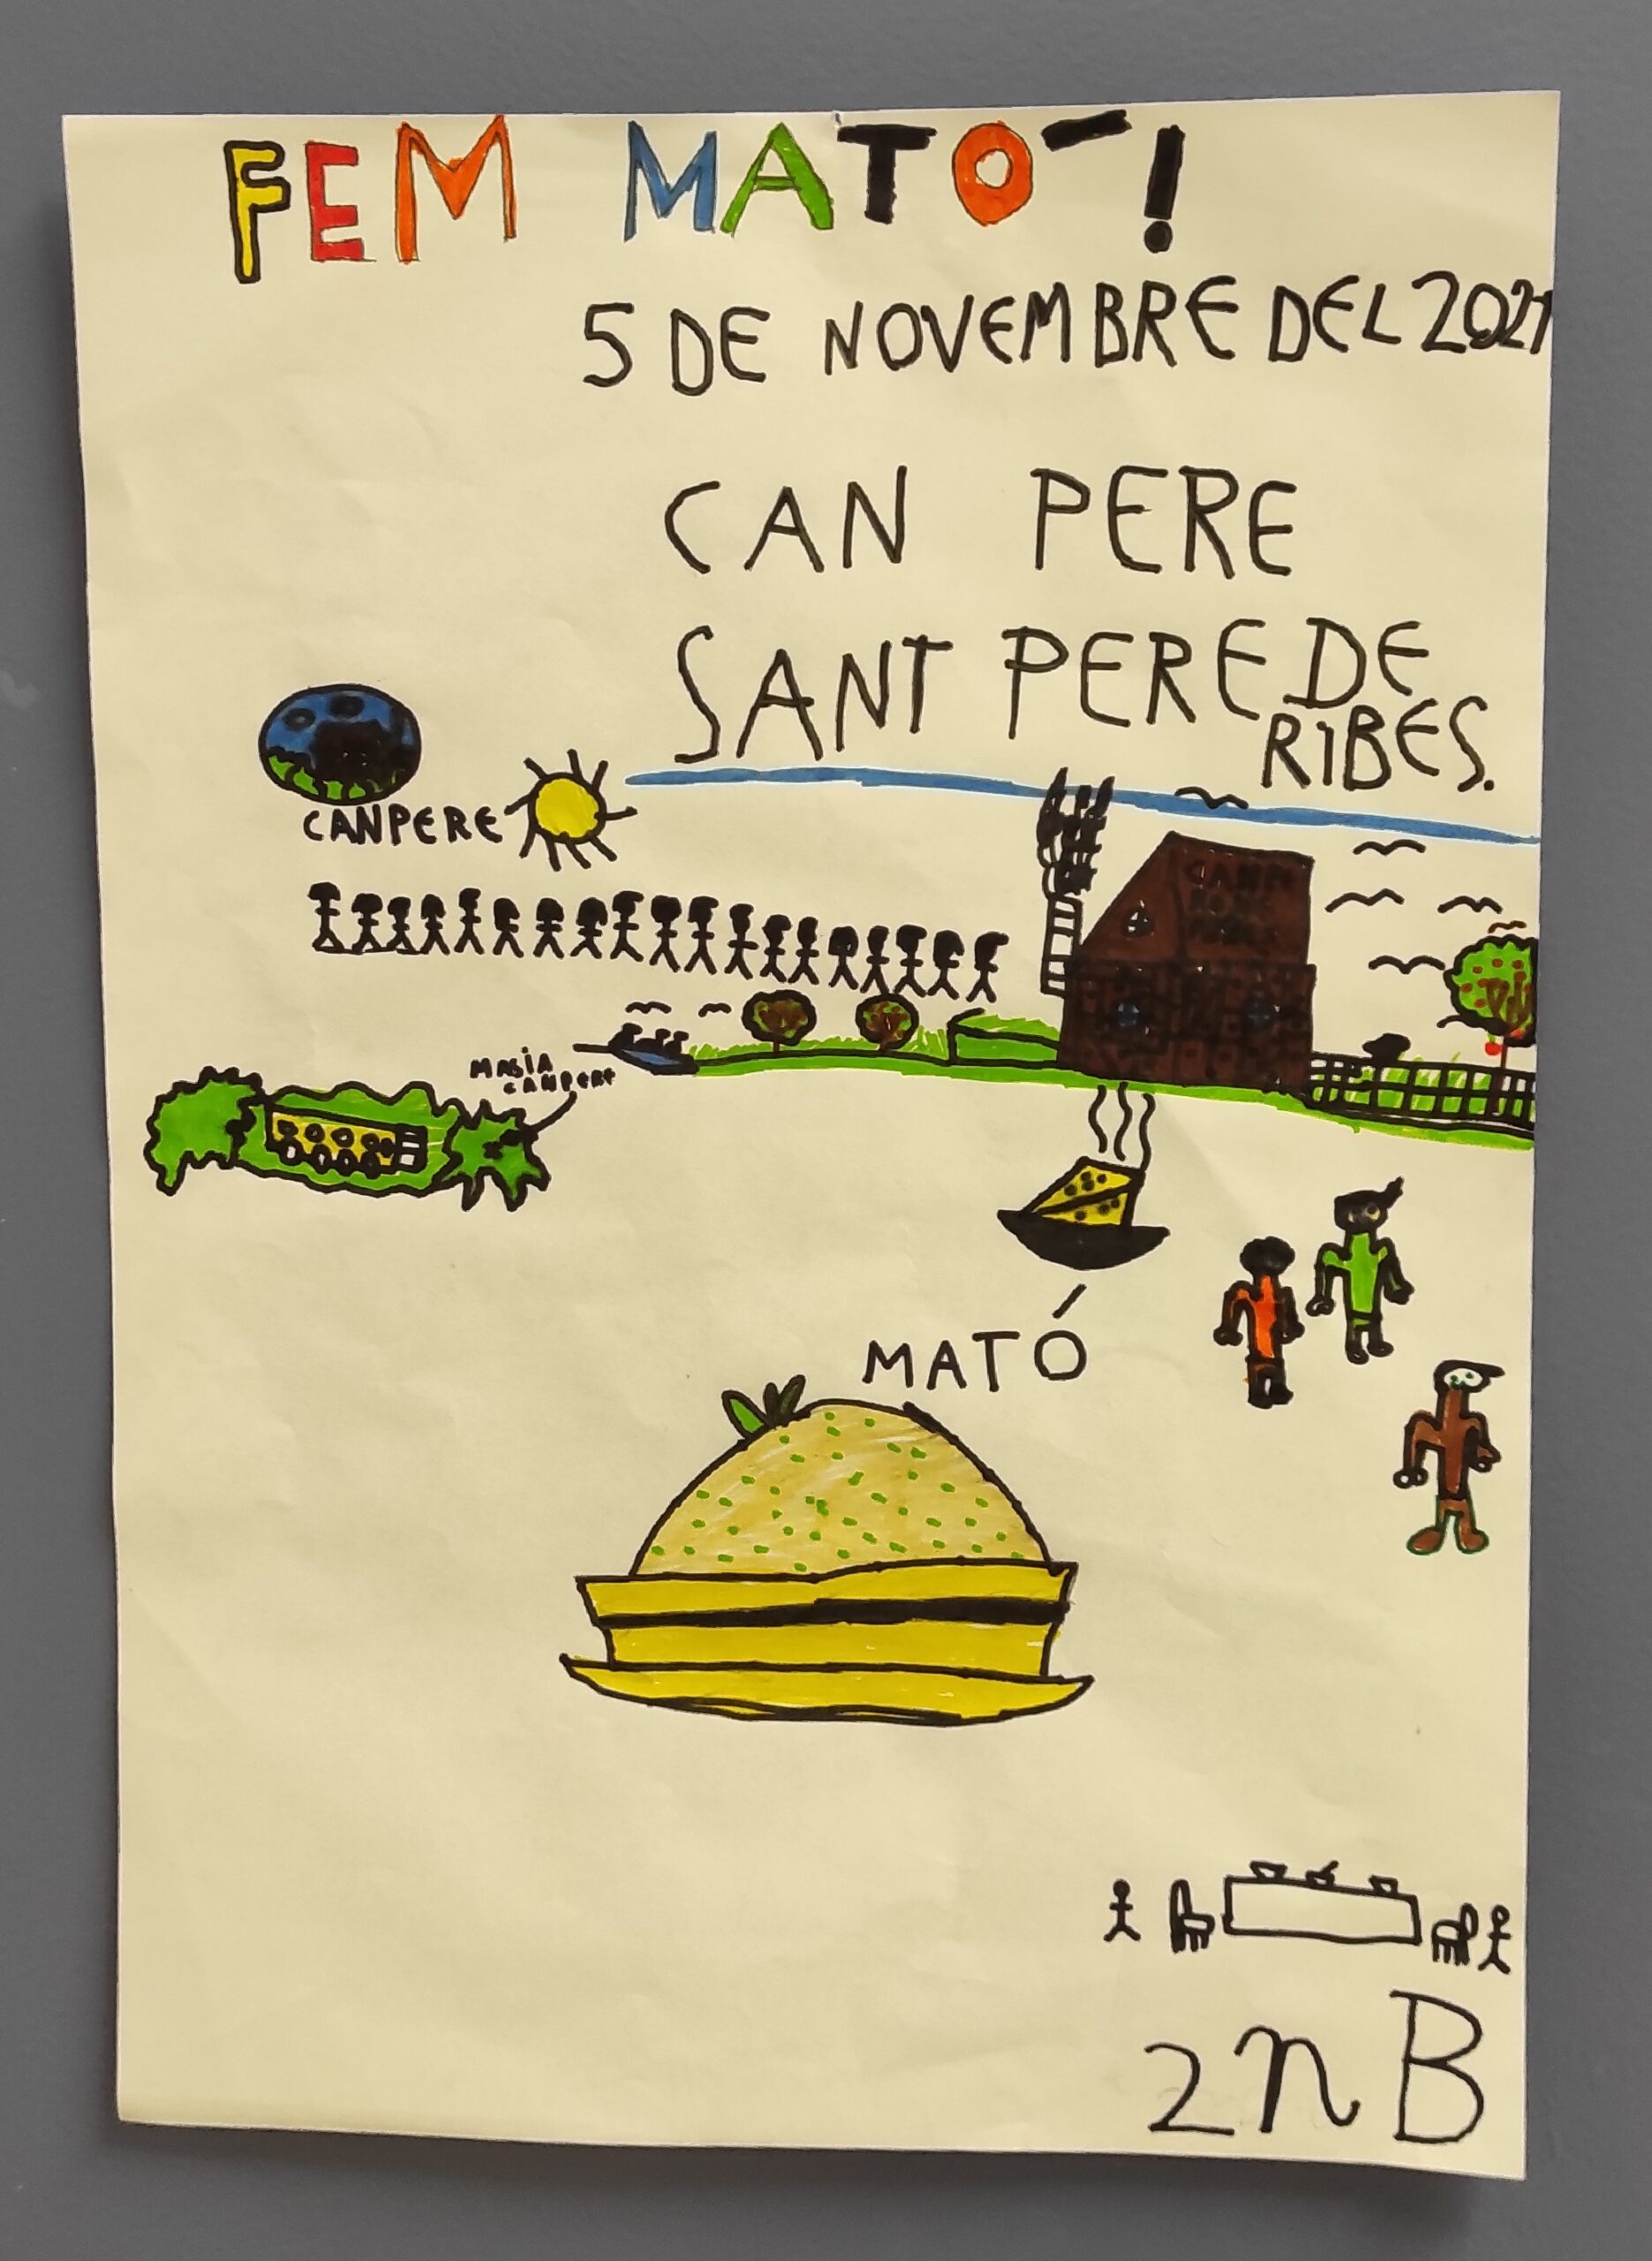 FEM MATÓ!
5 DE NOVEMBRE DEL 2021
CAN PERE
SANT PERE DE
RIBES.
CANPERE
MASIA
CANPERE
MATÓ
2n B